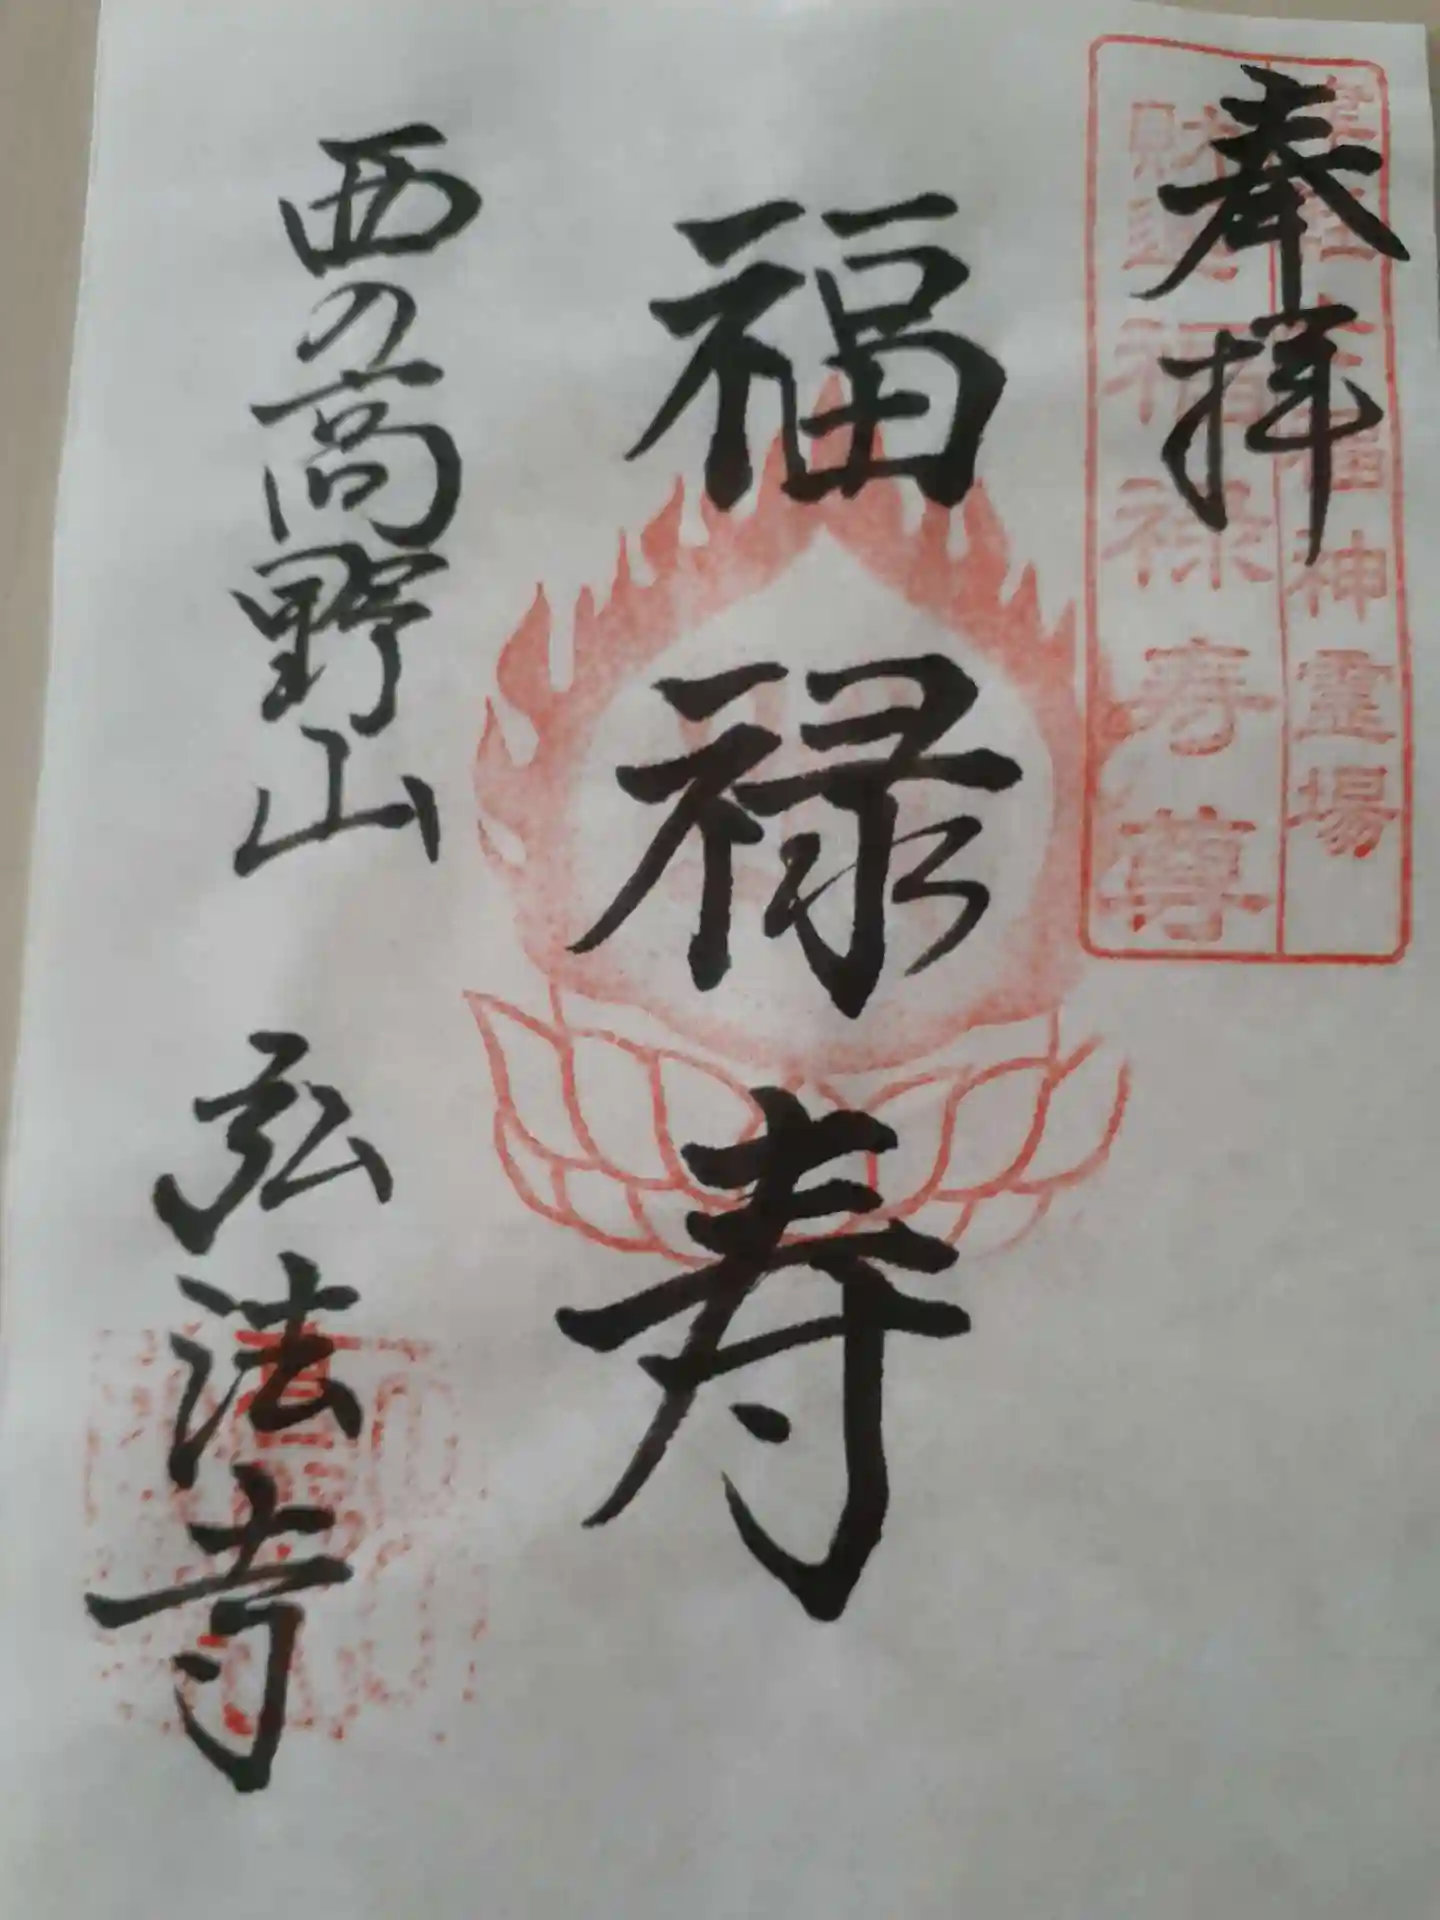 奉拝
七福神霊場
財運福禄寿尊
福禄寿
西の高野山 弘法寺